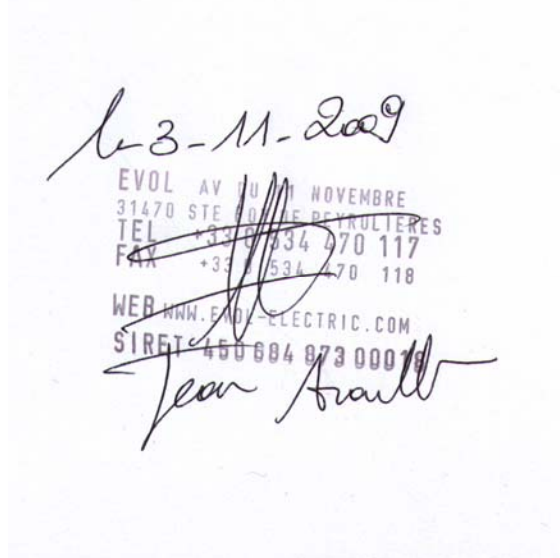 le 3-11-2009
EVOL AV DU 11 NOVEMBRE
31470 STE FOY DE PEYROLIERES
TEL +33 0 534 470 117
FAX +33 0 534 470 118
WEB WWW.EVOL-ELECTRIC.COM
SIRET 450 684 873 00018
Jean